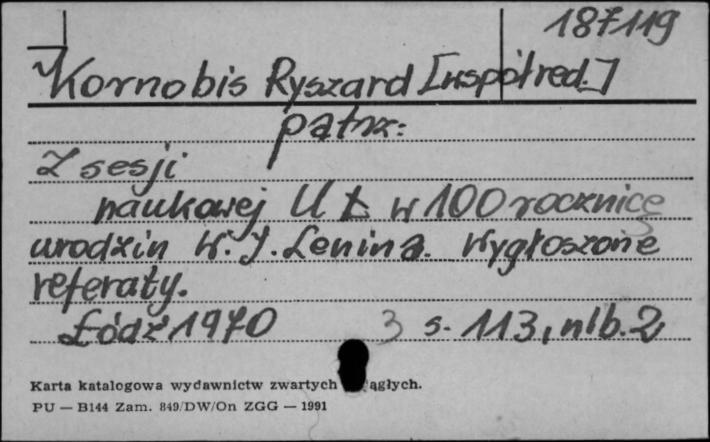 187119
Kornobis Ryszard [współred.]
patrz:
Z sesji
naukowej UŁ w 100 rocznicę
urodzin W. I. Lenina. Wygłoszone
referaty.
Łódź 1970 3 s. 113, nlb. 2
Karta katalogowa wydawnictw zwartych ągłych.
PU — B144 Zam. 849/DW/On ZGG — 1991